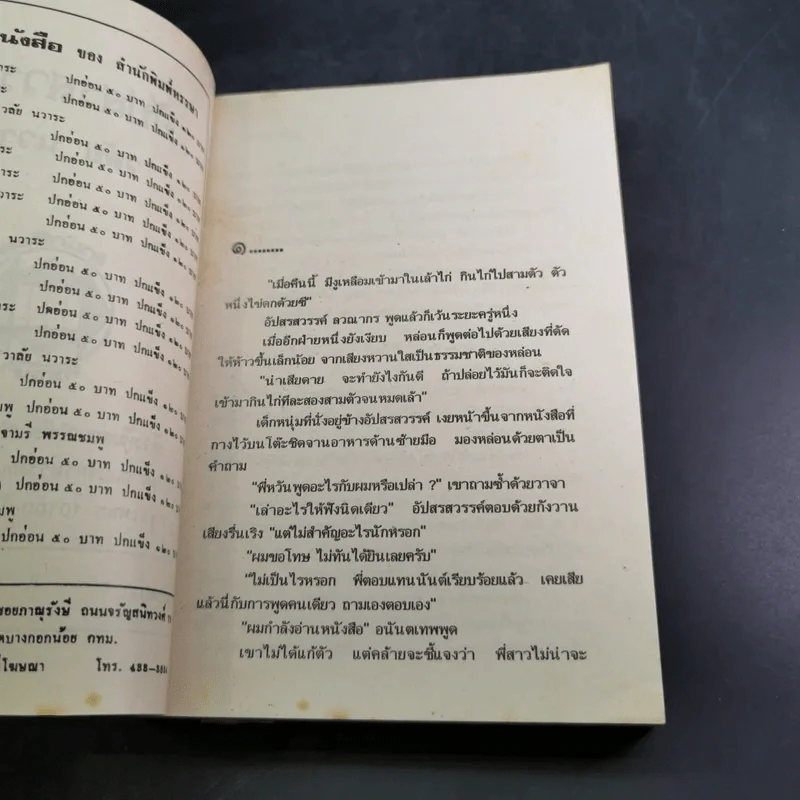 นังสือ ของ สำนักพิมพ์ทรรษา
าระ ปกอ่อน ๕๐ บาท ปกแข็ง ๑๒๐
ระ ปกอ่อน ๕๐ บาท ปกแข็ง ๑๒๐
วลัย นวาระ
ปกอ่อน ๕๐ บาท ปกแข็ง ๑๒๐
ระ ปกอ่อน ๕๐ บาท ปกแข็ง ๑๒๐
ปกอ่อน ๕๐ บาท ปกแข็ง ๑๒๐
วาระ ปกอ่อน ๕๐ บาท ปกแข็ง ๑๒๐
ปกอ่อน ๕๐ บาท ปกแข็ง ๑๒๐
นวาระ
ปกอ่อน ๕๐ บาท ปกแข็ง ๑๒๐
ปกอ่อน ๕๐ บาท ปกแข็ง ๑๒๐
าระ ปดอ่อน ๕๐ บาท ปกแข็ง ๑๒๐
ปกอ่อน ๕๐ บาท ปกแข็ง ๑๒๐
วาลัย นวาระ
ปกอ่อน ๕๐ บาท ปกแข็ง ๑๒๐
มพู ปกอ่อน ๕๐ บาท ปกแข็ง ๑๒๐
จามรี พรรณชมพู
ปกอ่อน ๕๐ บาท ปกแข็ง ๑๒๐
ปกอ่อน ๕๐ บาท ปกแข็ง ๑๒๐
มพู
ปกอ่อน ๕๐ บาท ปกแข็ง ๑๒๐
ซอยภาณุรังษี ถนนจรัญสนิทวงศ์
ตบางกอกน้อย กทม.
โฆษณา โทร.
๑........
"เมื่อคืนนี้ มีงูเหลือมเข้ามาในเล้าไก่ กินไก่ไปสามตัว ตัว
หนึ่งไข่ดกด้วยซี"
อัปสรสวรรค์ ลวณากร พูดแล้วก็เว้นระยะครู่หนึ่ง
เมื่ออีกฝ่ายหนึ่งยังเงียบ หล่อนก็พูดต่อไปด้วยเสียงที่ดัด
ให้ห้าวขึ้นเล็กน้อย จากเสียงหวานใสเป็นธรรมชาติของหล่อน
"น่าเสียดาย จะทำยังไงกันดี ถ้าปล่อยไว้มันก็จะติดใจ
เข้ามากินไก่ทีละสองสามตัวจนหมดเล้า"
เด็กหนุ่มที่นั่งอยู่ข้างอัปสรสวรรค์ เงยหน้าขึ้นจากหนังสือที่
กางไว้บนโต๊ะชิดจานอาหารด้านซ้ายมือ มองหล่อนด้วยตาเป็น
คำถาม
"พี่หวันพูดอะไรกับผมหรือเปล่า ?" เขาถามซ้ำด้วยวาจา
"เล่าอะไรให้ฟังนิดเดียว" อัปสรสวรรค์ตอบด้วยกังวาน
เสียงรื่นเริง "แต่ไม่สำคัญอะไรนักหรอก"
"ผมขอโทษ ไม่ทันได้ยินเลยครับ"
"ไม่เป็นไรหรอก พี่ตอบแทนนันต์เรียบร้อยแล้ว เคยเสีย
แล้วนี่กับการพูดคนเดียว ถามเองตอบเอง"
"ผมกำลังอ่านหนังสือ" อนันตเทพพูด
เขาไม่ได้แก้ตัว แต่คล้ายจะชี้แจงว่า พี่สาวไม่น่าจะ